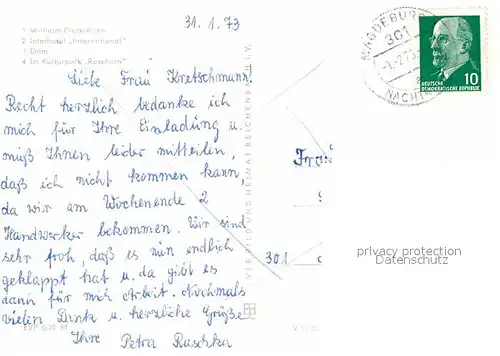 31.1.73
1 Wilhelm-Pieck-Allee
2 Interhotel „International"
3 Dom
4 Im Kulturpark „Rotehorn"
Liebe Frau Kretschmann!
Recht herzlich bedanke ich
mich für Ihre Einladung u.
muß Ihnen leider mitteilen,
daß ich nicht kommen kann,
da wir am Wochenende 2
Handwerker bekommen. Wir sind
sehr froh, daß es nun endlich
geklappt hat u. da gibt es
dann für mich Arbeit. Nochmals
vielen Dank u. herzliche Grüße
Ihre Petra Ruschka
EVP 0,20 M
VERLAG BILD UND HEIMAT REICHENBACH I. V.
MAGDEBURG
301
DEUTSCHE
DEMOKRATISCHE REPUBLIK
10
Frau
301
privacy protection
Datenschutz